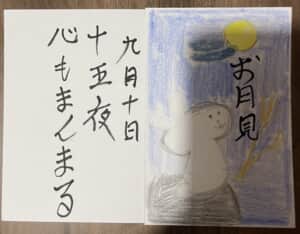 九月十日
十五夜
心もまんまる
お月見